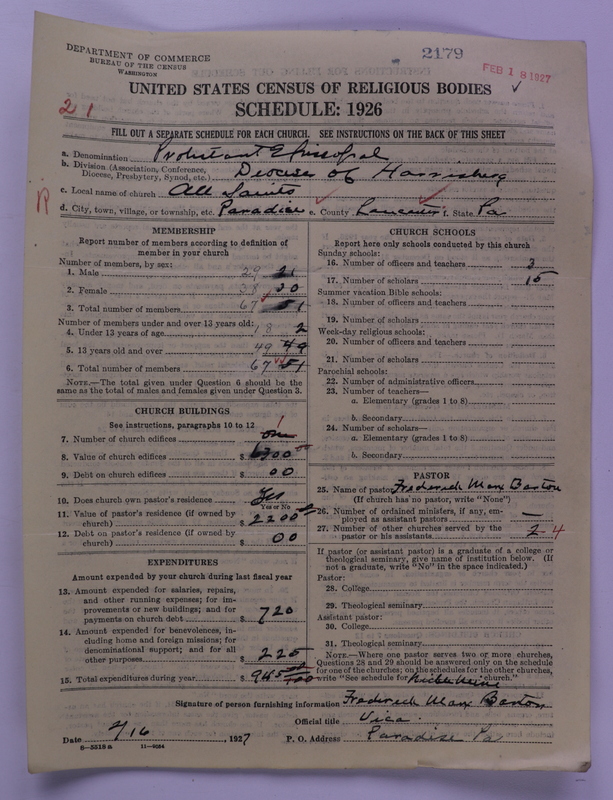 DEPARTMENT OF COMMERCE
BUREAU OF THE CENSUS
WASHINGTON
2179
FEB 18 1927
UNITED STATES CENSUS OF RELIGIOUS BODIES ✓
21
SCHEDULE: 1926
FILL OUT A SEPARATE SCHEDULE FOR EACH CHURCH. SEE INSTRUCTIONS ON THE BACK OF THIS SHEET
a. Denomination Protestant Episcopal
b. Division (Association, Conference, Diocese, Presbytery, Synod, etc.) Diocese of Harrisburg
c. Local name of church All Saints
R
d. City, town, village, or township, etc. Paradise e. County Lancaster f. State Pa
MEMBERSHIP
Report number of members according to definition of
member in your church
Number of members, by sex:
1. Male 29 21
2. Female 38 30
3. Total number of members 67 51
Number of members under and over 13 years old:
4. Under 13 years of age 18 2
5. 13 years old and over 49 49
6. Total number of members 67 51
NOTE.—The total given under Question 6 should be
same as the total of males and females given under Question 3.
CHURCH BUILDINGS
See instructions, paragraphs 10 to 12
7. Number of church edifices one 1
8. Value of church edifices $ 6300
9. Debt on church edifices $ 00
10. Does church own pastor's residence Yes
Yes or No
11. Value of pastor's residence (if owned by
church) $ 2200
12. Debt on pastor's residence (if owned by
church) $ 00
EXPENDITURES
Amount expended by your church during last fiscal year
13. Amount expended for salaries, repairs,
and other running expenses; for im-
provements or new buildings; and for
payments on church debt $ 720
14. Amount expended for benevolences, in-
cluding home and foreign missions; for
denominational support; and for all
other purposes $ 225
15. Total expenditures during year $ 945
CHURCH SCHOOLS
Report here only schools conducted by this church
Sunday schools:
16. Number of officers and teachers 3
17. Number of scholars 15
Summer vacation Bible schools:
18. Number of officers and teachers
19. Number of scholars
Week-day religious schools:
20. Number of officers and teachers
21. Number of scholars
Parochial schools:
22. Number of administrative officers
23. Number of teachers—
a. Elementary (grades 1 to 8)
b. Secondary
24. Number of scholars—
a. Elementary (grades 1 to 8)
b. Secondary
PASTOR
25. Name of pastor Frederick Marx Barton
(If church has no pastor, write "None")
26. Number of ordained ministers, if any, em-
ployed as assistant pastors —
27. Number of other churches served by the
pastor or his assistants 2 4
If pastor (or assistant pastor) is a graduate of a college or
theological seminary, give name of institution below. (If
not a graduate, write "No" in the space indicated.)
Pastor:
28. College
29. Theological seminary
Assistant pastor:
30. College
31. Theological seminary
NOTE.—Where one pastor serves two or more churches,
Questions 28 and 29 should be answered only on the schedule
for one of the churches; on the schedules for the other churches,
write "See schedule for Nickel Mine church."
Signature of person furnishing information Frederick Marx Barton
Official title Vicar
Date 2/16, 1927 P. O. Address Paradise Pa
8—5515a 11—9584